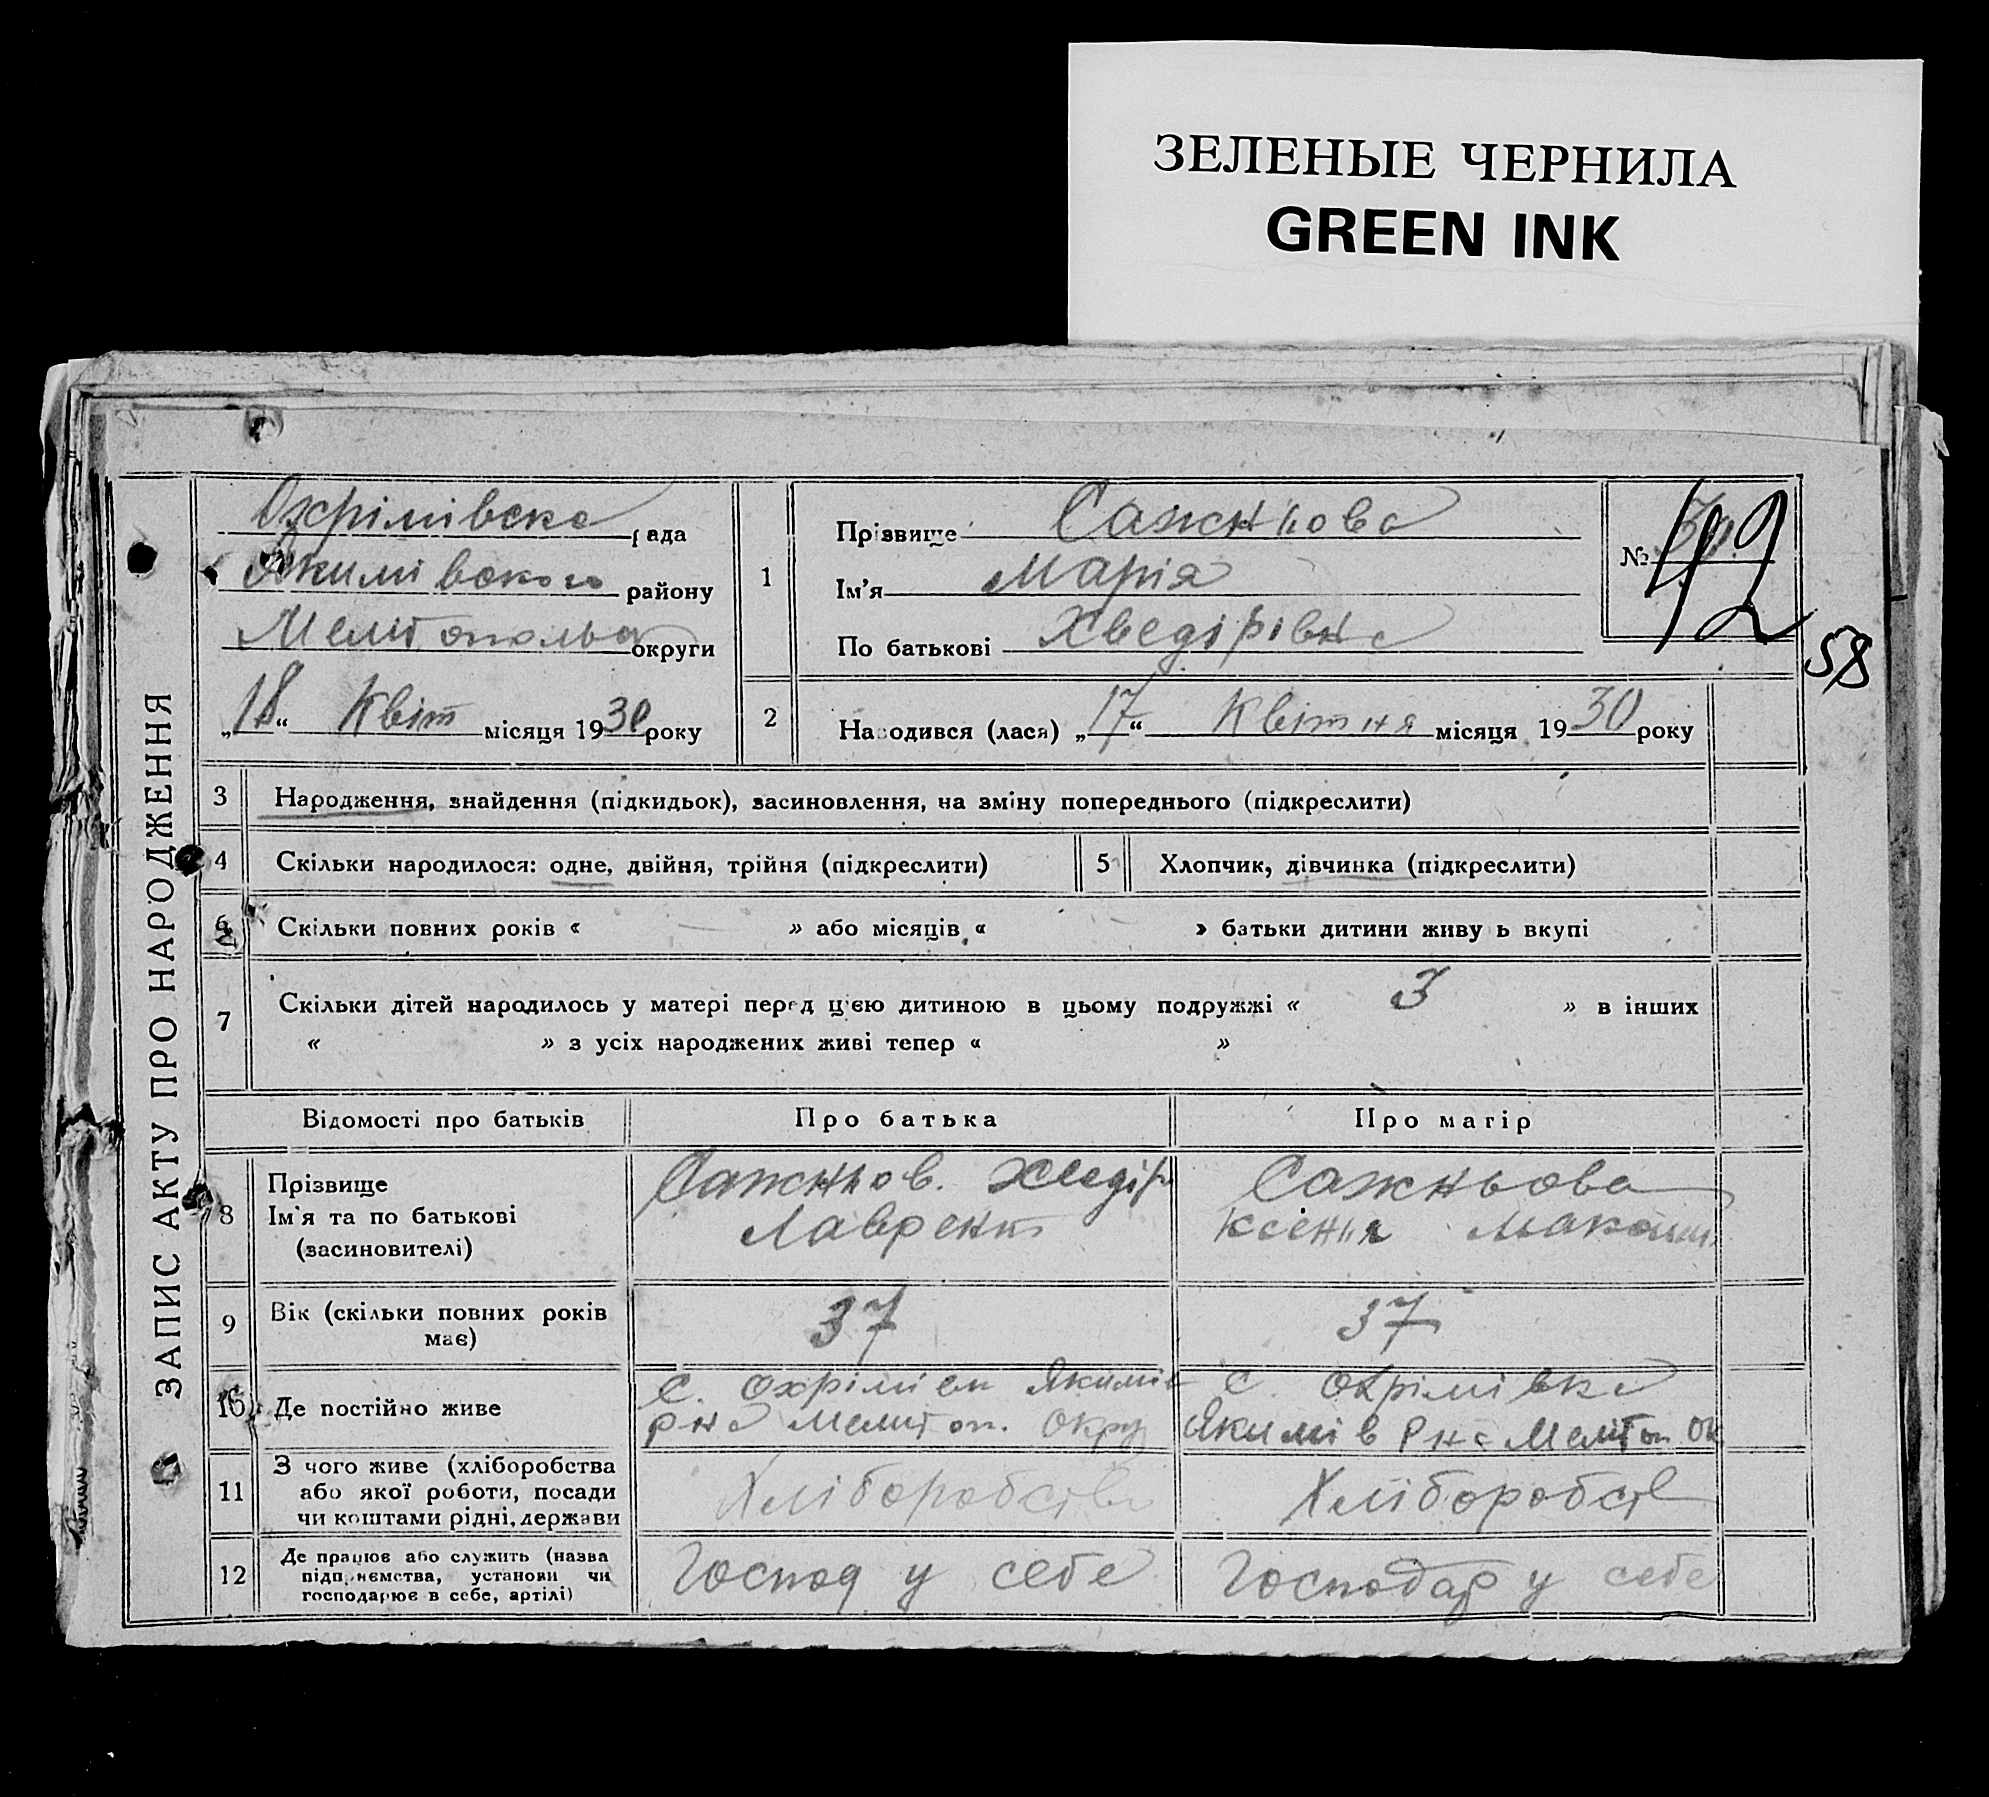 ЗЕЛЕНЫЕ ЧЕРНИЛА
GREEN INK
ЗАПИС АКТУ ПРО НАРОДЖЕННЯ
Охрімівска рада
Якимівского району
округи
„18“ Квіт місяця 1930 року
1
Прізвище Сажньова
Ім'я Марія
По батькові Хведірівна
№ 42
58
2 Народився (лася) „17“ Квітня місяця 1930 року
3 Народження, знайдення (підкидьок), засиновлення, на зміну попереднього (підкреслити)
4 Скільки народилося: одне, двійня, трійня (підкреслити) 5 Хлопчик, дівчинка (підкреслити)
6 Скільки повних років « » або місяців « » батьки дитини живуть вкупі
7 Скільки дітей народилось у матері перед цією дитиною в цьому подружжі « 3 » в інших
« » з усіх народжених живі тепер « »
Відомості про батьків Про батька Про матір
8 Прізвище
Ім'я та по батькові
(засиновителі)
Сажньов. Хведір
Лаврент
Сажньова
Ксенія Максим
9 Вік (скільки повних років має)
37
37
10 Де постійно живе
с. Охрімівк Якимів
р-на Меліт оп. Окру
с. Охрімівка
Якимів Рна Меліт оп Ок
11 З чого живе (хліборобства
або якої роботи, посади
чи коштами рідні, держави
Хліборобств
Хліборобств
12 Де працює або служить (назва
підприємства, установи чи
господарює в себе, артілі)
Господ у себе
Господар у себе